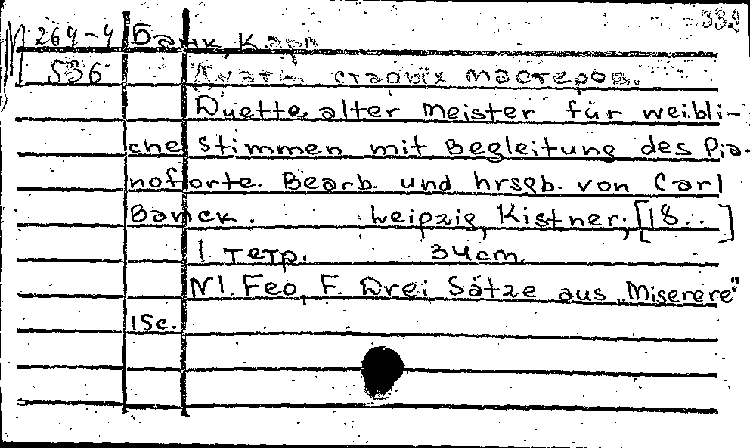 332
М 264-4 Банк, Карл
536 Дуэты старых мастеров.
Duette alter Meister für weibli-
che Stimmen mit Begleitung des Pia-
noforte. Bearb. und hrsgb. von Carl
Banck. Leipzig, Kistner, [18..]
1 тетр. 34cm.
N1. Feo, F. Drei Sätze aus „Miserere"
15c.